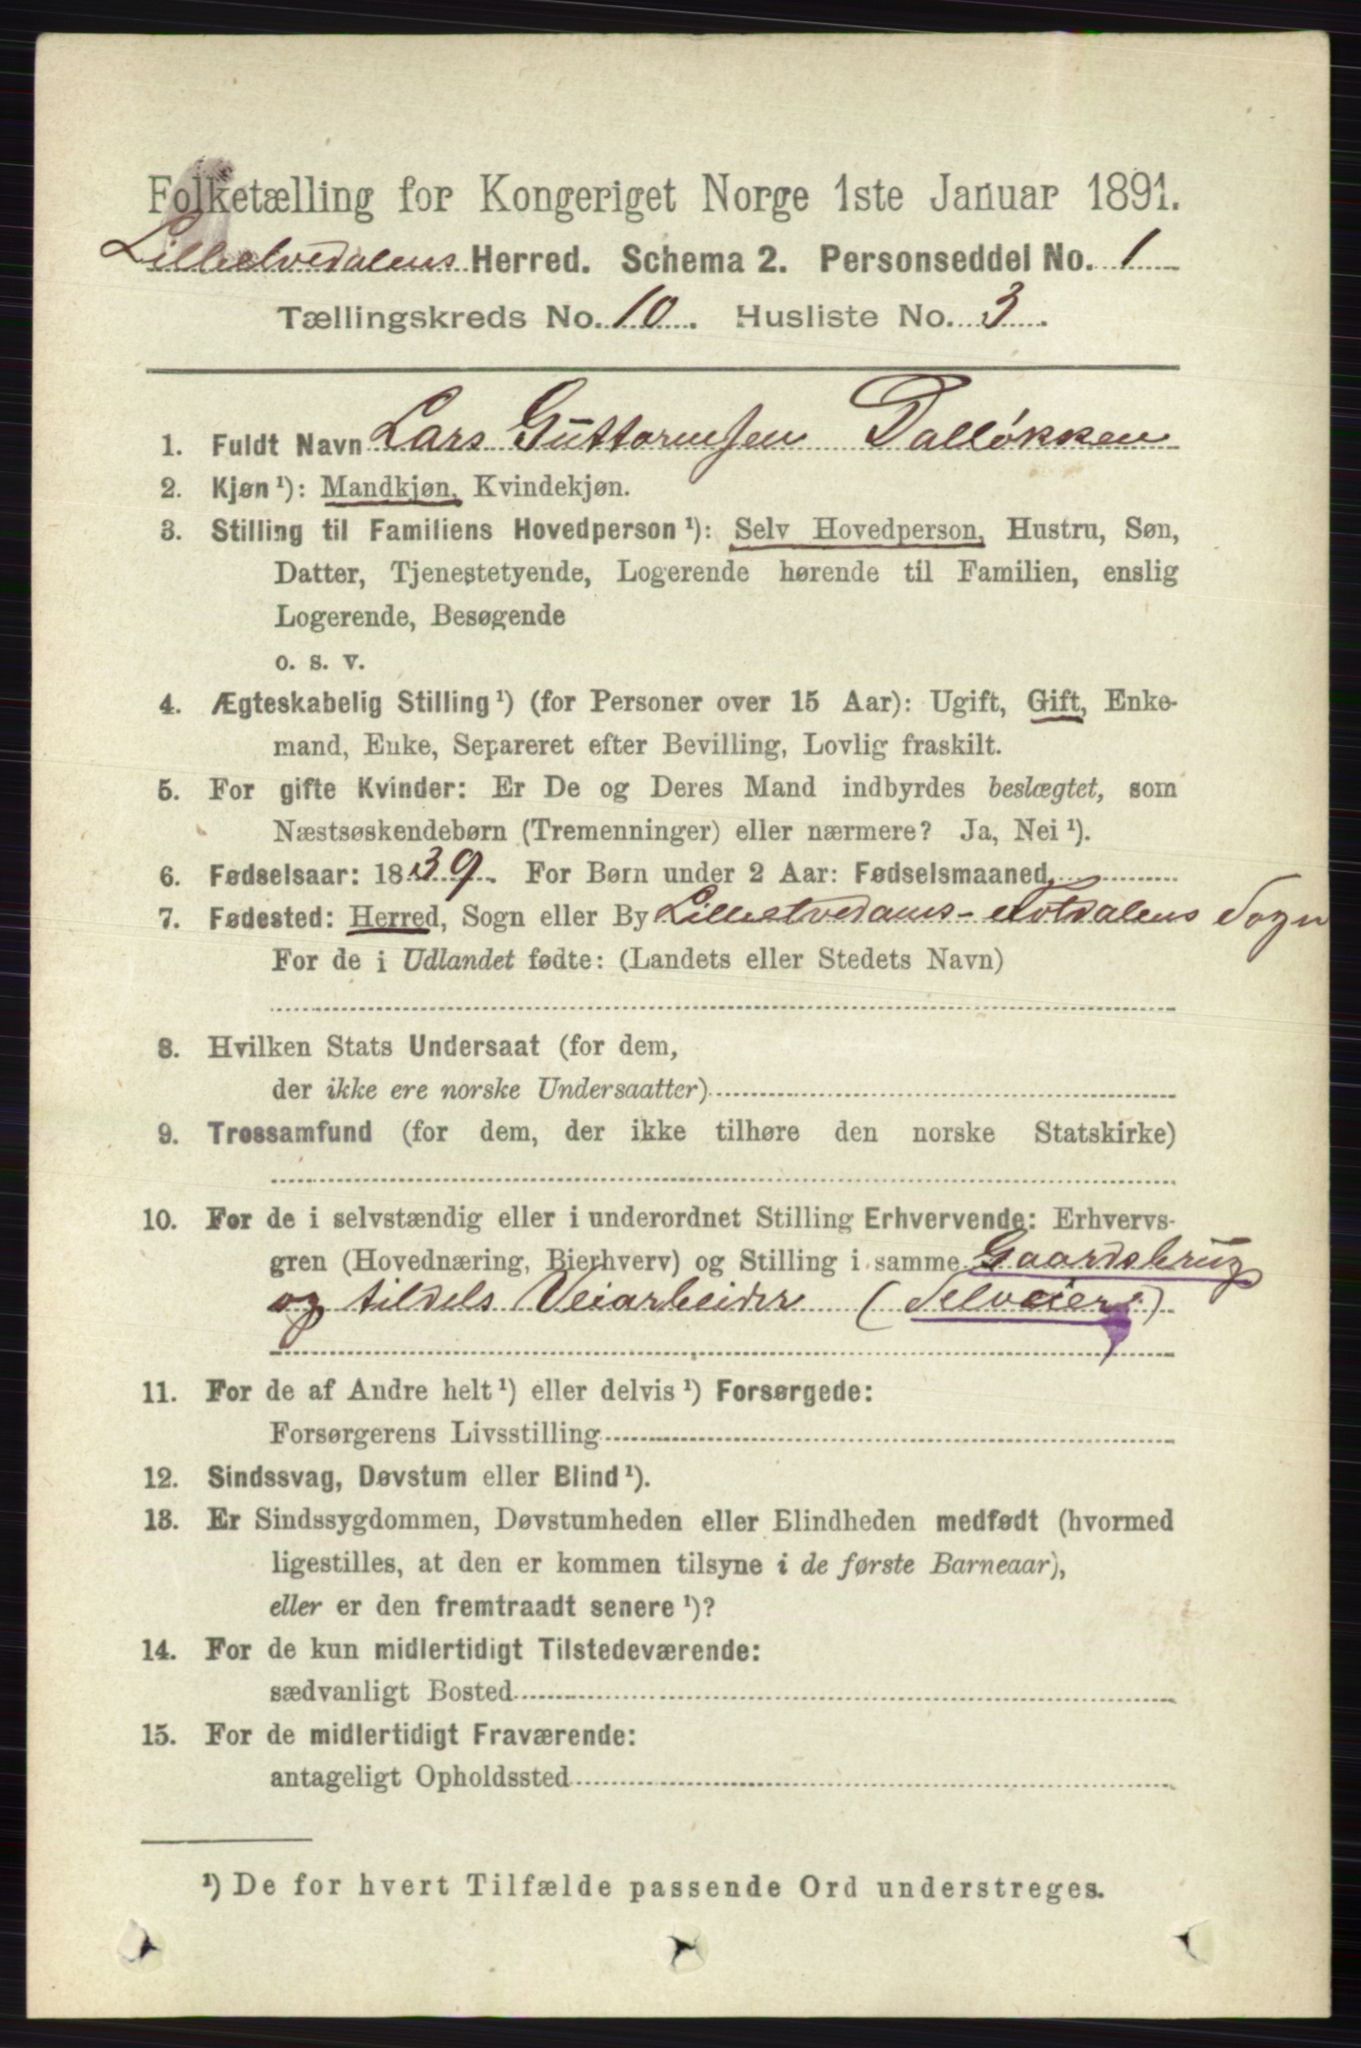 Folketælling for Kongeriget Norge 1ste Januar 1891.
Lilleelvedalens Herred. Schema 2. Personseddel No. 1
Tællingskreds No. 10. Husliste No. 3.
1. Fuldt Navn Lars Guttormsen Dalløkken
2. Kjøn ¹): Mandkjøn, Kvindekjøn.
3. Stilling til Familiens Hovedperson ¹): Selv Hovedperson, Hustru, Søn,
Datter, Tjenestetyende, Logerende hørende til Familien, enslig
Logerende, Besøgende
o. s. v.
4. Ægteskabelig Stilling ¹) (for Personer over 15 Aar): Ugift, Gift, Enke-
mand, Enke, Separeret efter Bevilling, Lovlig fraskilt.
5. For gifte Kvinder: Er De og Deres Mand indbyrdes beslægtet, som
Næstsøskendebørn (Tremenninger) eller nærmere? Ja, Nei ¹).
6. Fødselsaar: 1839. For Børn under 2 Aar: Fødselsmaaned
7. Fødested: Herred, Sogn eller By Sogn
For de i Udlandet fødte: (Landets eller Stedets Navn)
8. Hvilken Stats Undersaat (for dem,
der ikke ere norske Undersaatter)
9. Trossamfund (for dem, der ikke tilhøre den norske Statskirke)
10. For de i selvstændig eller i underordnet Stilling Erhvervende: Erhvervs-
gren (Hovednæring, Bierhverv) og Stilling i samme Gaardsbrug
og tildels Veiarbeider (Selveier)
11. For de af Andre helt ¹) eller delvis ¹) Forsørgede:
Forsørgerens Livsstilling
12. Sindssvag, Døvstum eller Blind ¹).
13. Er Sindssygdommen, Døvstumheden eller Blindheden medfødt (hvormed
ligestilles, at den er kommen tilsyne i de første Barneaar),
eller er den fremtraadt senere ¹)?
14. For de kun midlertidigt Tilstedeværende:
sædvanligt Bosted
15. For de midlertidigt Fraværende:
antageligt Opholdssted
¹) De for hvert Tilfælde passende Ord understreges.